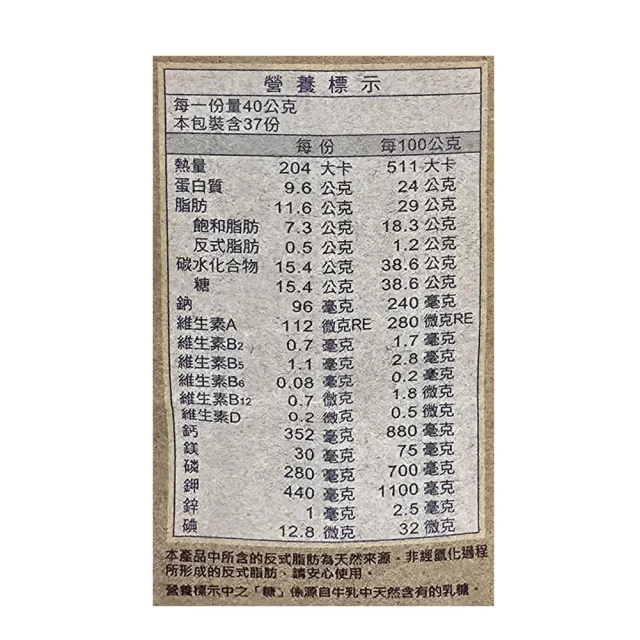 營養標示
每一份量40公克
本包裝含37份
每份 每100公克
熱量 204 大卡 511 大卡
蛋白質 9.6 公克 24 公克
脂肪 11.6 公克 29 公克
飽和脂肪 7.3 公克 18.3 公克
反式脂肪 0.5 公克 1.2 公克
碳水化合物 15.4 公克 38.6 公克
糖 15.4 公克 38.6 公克
鈉 96 毫克 240 毫克
維生素A 112 微克RE 280 微克RE
維生素B2 0.7 毫克 1.7 毫克
維生素B5 1.1 毫克 2.8 毫克
維生素B6 0.08 毫克 0.2 毫克
維生素B12 0.7 微克 1.8 微克
維生素D 0.2 微克 0.5 微克
鈣 352 毫克 880 毫克
鎂 30 毫克 75 毫克
磷 280 毫克 700 毫克
鉀 440 毫克 1100 毫克
鋅 1 毫克 2.5 毫克
碘 12.8 微克 32 微克
本產品中所含的反式脂肪為天然來源，非經氫化過程
所形成的反式脂肪、請安心使用。
營養標示中之「糖」係源自牛乳中天然含有的乳糖。